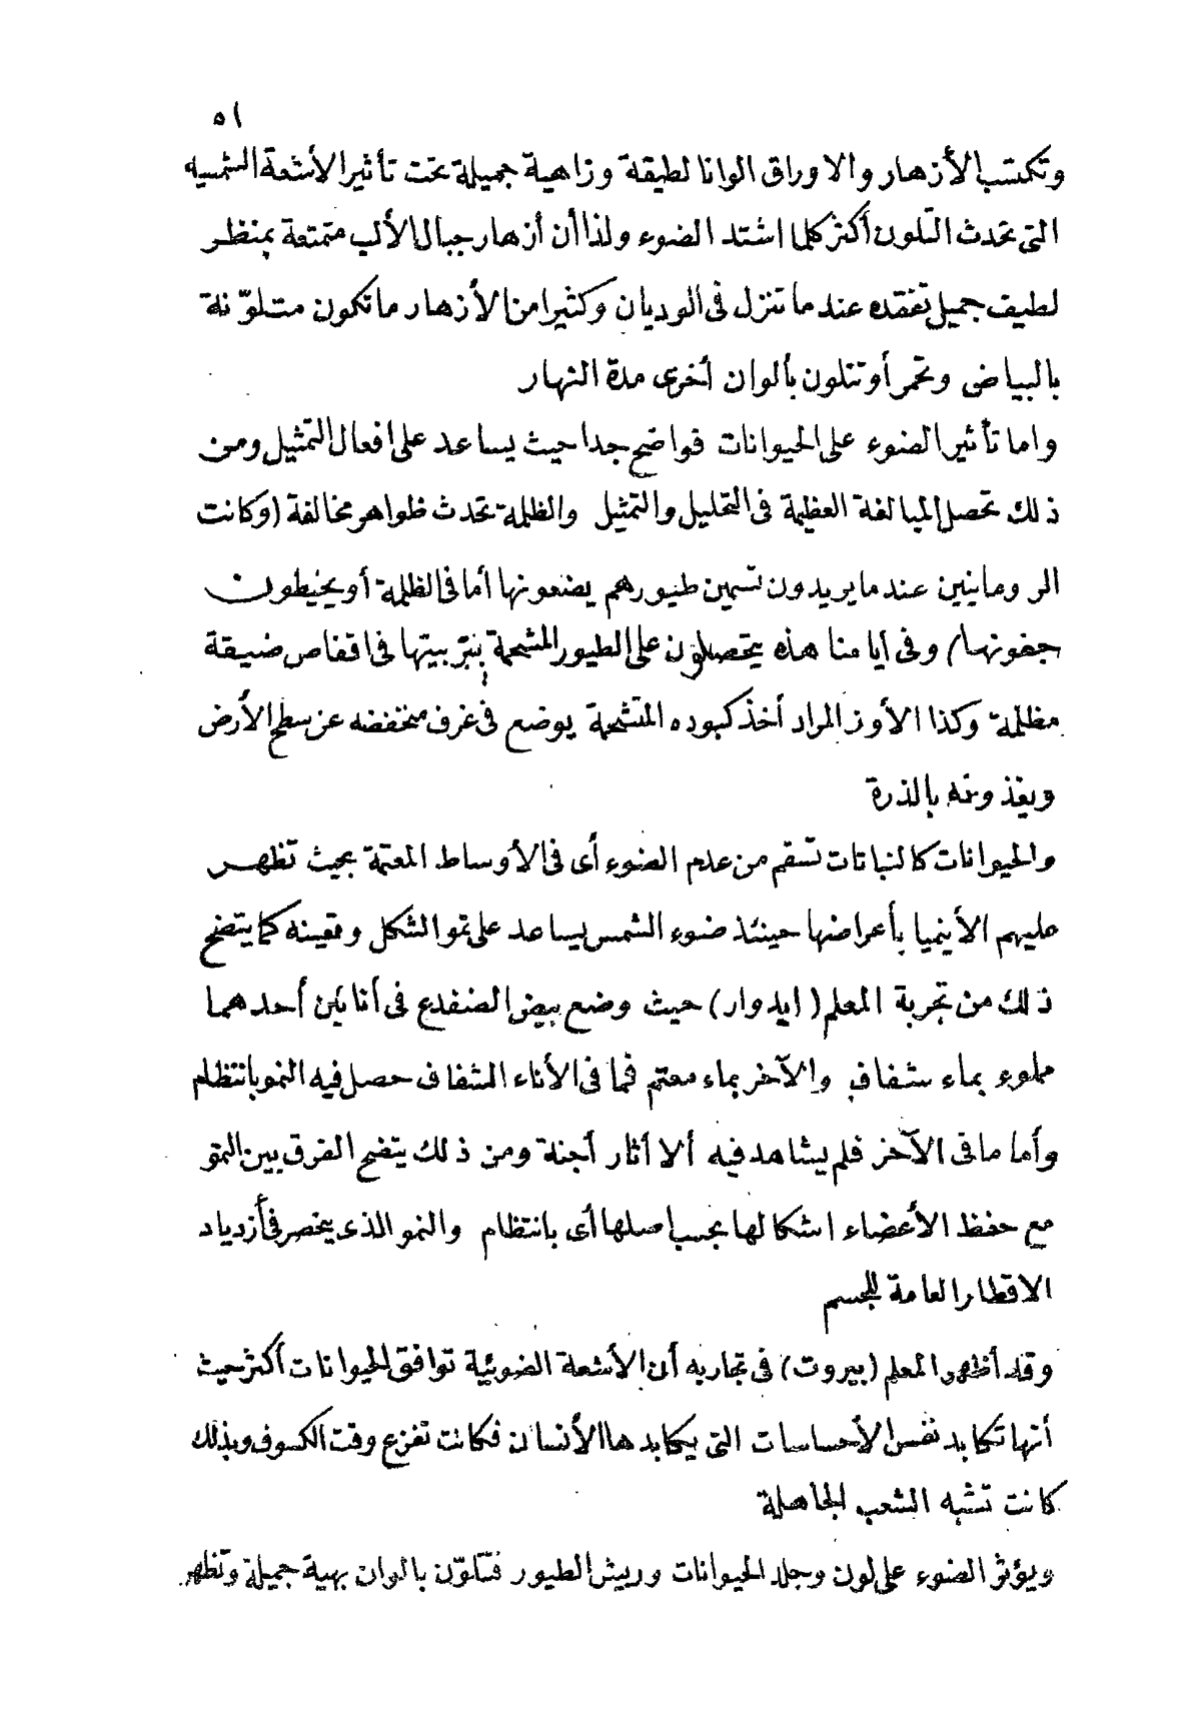 ٥١
وتكتسب الأزهار والاوراق الوانا لطيقة وزاهية جميلة تحت تأثير الأشعة الشمسيه
التى تحدث التلون أكثر كلما اشتد الضوء ولذا أن أزهار جبال الألب متمتعة بمنظر
لطيف جميل تفقده عند ما تنزل فى الوديان وكثيرا من الأزهار ما تكون متلوّنة
بالبياض وتحمر أو تتلون بألوان أخرى مدة النهار
واما تأثير الضوء على الحيوانات فواضح جدا حيث يساعد على افعال التمثيل ومن
ذلك تحصل المبالغة العظيمة فى التحليل والتمثيل والظلمة تحدث ظواهر مخالفة (وكانت
الرومانيين عند ما يريدون تسمين طيورهم يضعونها أما فى الظلمة أو يخيطون
جفونها) وفى ايامنا هذه يتحصلون على الطيور المشحمة بتربيتها فى اقفاص ضيقة
مظلمة وكذا الأوز المراد أخذ كبوده المتشحمة يوضع فى غرف منخفضه عن سطح الأرض
ويغذونه بالذرة
والحيوانات كالنباتات تسقم من عدم الضوء أى فى الأوساط المعتمة بحيث تظهر
عليهم الأنيميا بأعراضها حينئذ ضوء الشمس يساعد على نمو الشكل وتعينه كما يتضح
ذلك من تجربة المعلم (ايدوار) حيث وضع بيض الضفدع فى أنائين أحدهما
مملوء بماء شفاف والآخر بماء معتم فما فى الأناء الشفاف حصل فيه النمو بانتظام
وأما ما فى الآخر فلم يشاهد فيه ألا أثار أجنة ومن ذلك يتضح الفرق بين النمو
مع حفظ الأعضاء اشكالها بحسب اصلها أى بانتظام والنمو الذى ينحصر فى أزدياد
الاقطار العامة للجسم
وقد أظهر المعلم (بيروت) فى تجاربه أن الأشعة الضوئية توافق الحيوانات أكثر حيث
أنها تكابد نفس الأحساسات التى يكابدها الأنسان فكانت تفزع وقت الكسوف وبذلك
كانت تشبه الشعب الجاهلة
ويؤثر الضوء على لون وجلد الحيوانات وريش الطيور فتتلوّن بالوان بهية جميلة وتظهر